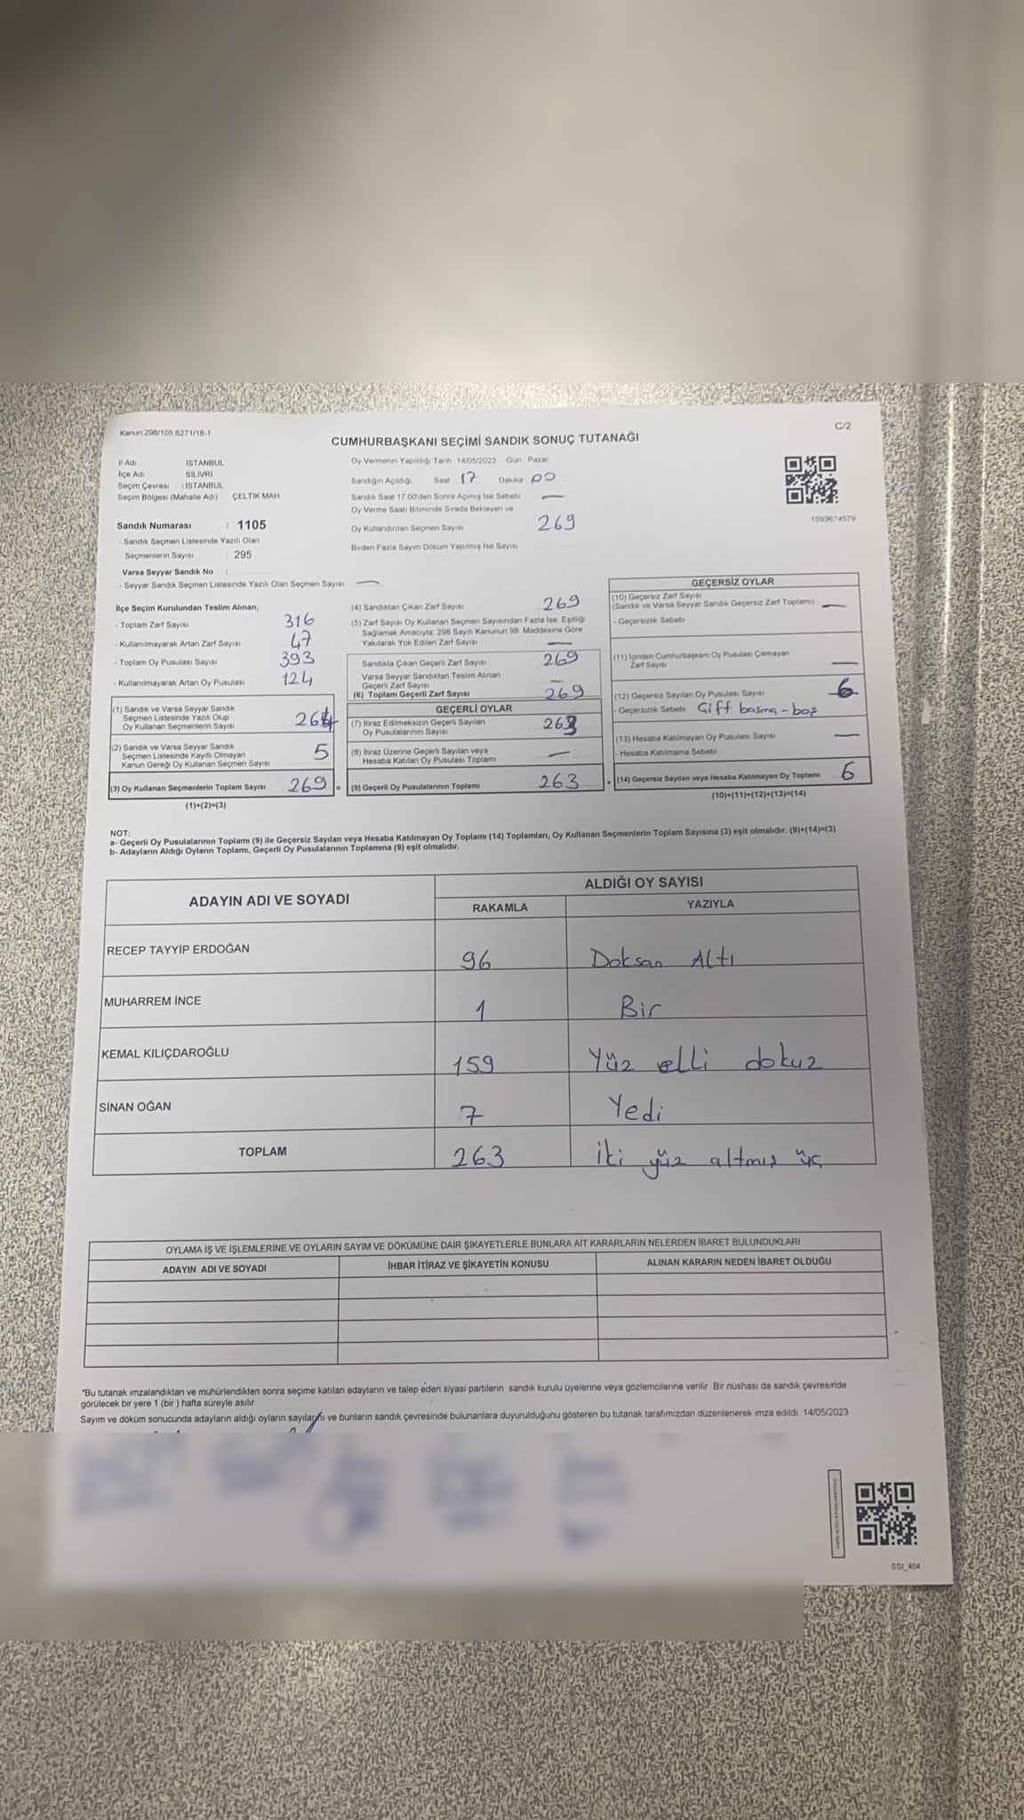 Kanun:298/105,6271/18-1
C/2
CUMHURBAŞKANI SEÇİMİ SANDIK SONUÇ TUTANAĞI
İl Adı : İSTANBUL
İlçe Adı : SİLİVRİ
Seçim Çevresi : İSTANBUL
Seçim Bölgesi (Mahalle Adı) ÇELTİK MAH
Sandık Numarası : 1105
- Sandık Seçmen Listesinde Yazılı Olan
Seçmenlerin Sayısı : 295
Varsa Seyyar Sandık No :
- Seyyar Sandık Seçmen Listesinde Yazılı Olan Seçmen Sayısı —
Oy Vermenin Yapıldığı Tarih 14/05/2023 Gün Pazar
Sandığın Açıldığı Saat 17 Dakika 00
Sandık Saat 17.00'den Sonra Açılmış İse Sebebi —
Oy Verme Saati Bitiminde Sırada Bekleyen ve
Oy Kullandırılan Seçmen Sayısı 269
Birden Fazla Sayım Döküm Yapılmış İse Sayısı
1093674579
İlçe Seçim Kurulundan Teslim Alınan;
- Toplam Zarf Sayısı 316
- Kullanılmayarak Artan Zarf Sayısı 47
- Toplam Oy Pusulası Sayısı 393
- Kullanılmayarak Artan Oy Pusulası 124
(1) Sandık ve Varsa Seyyar Sandık
Seçmen Listesinde Yazılı Olup
Oy Kullanan Seçmenlerin Sayısı 264
(2) Sandık ve Varsa Seyyar Sandık
Seçmen Listesinde Kayıtlı Olmayan
Kanun Gereği Oy Kullanan Seçmen Sayısı 5
(3) Oy Kullanan Seçmenlerin Toplam Sayısı 269
(1)+(2)=(3)
(4) Sandıktan Çıkan Zarf Sayısı 269
(5) Zarf Sayısı Oy Kullanan Seçmen Sayısından Fazla İse, Eşitliği
Sağlamak Amacıyla; 298 Sayılı Kanunun 98. Maddesine Göre
Yakılarak Yok Edilen Zarf Sayısı —
Sandıkta Çıkan Geçerli Zarf Sayısı 269
Varsa Seyyar Sandıktan Teslim Alınan
Geçerli Zarf Sayısı —
(6) Toplam Geçerli Zarf Sayısı 269
GEÇERLİ OYLAR
(7) İtiraz Edilmeksizin Geçerli Sayılan
Oy Pusulalarının Sayısı 263
(8) İtiraz Üzerine Geçerli Sayılan veya
Hesaba Katılan Oy Pusulası Toplamı —
(9) Geçerli Oy Pusulalarının Toplamı 263
GEÇERSİZ OYLAR
(10) Geçersiz Zarf Sayısı
(Sandık ve Varsa Seyyar Sandık Geçersiz Zarf Toplamı) —
- Geçersizlik Sebebi
(11) İçinden Cumhurbaşkanı Oy Pusulası Çıkmayan
Zarf Sayısı —
(12) Geçersiz Sayılan Oy Pusulası Sayısı 6
- Geçersizlik Sebebi Çift basma - boş
(13) Hesaba Katılmayan Oy Pusulası Sayısı —
- Hesaba Katılmama Sebebi
(14) Geçersiz Sayılan veya Hesaba Katılmayan Oy Toplamı 6
(10)+(11)+(12)+(13)=(14)
NOT:
a- Geçerli Oy Pusulalarının Toplamı (9) ile Geçersiz Sayılan veya Hesaba Katılmayan Oy Toplamı (14) Toplamları, Oy Kullanan Seçmenlerin Toplam Sayısına (3) eşit olmalıdır. (9)+(14)=(3)
b- Adayların Aldığı Oyların Toplamı, Geçerli Oy Pusulalarının Toplamına (9) eşit olmalıdır.
ADAYIN ADI VE SOYADI
ALDIĞI OY SAYISI
RAKAMLA YAZIYLA
RECEP TAYYİP ERDOĞAN 96 Doksan Altı
MUHARREM İNCE 1 Bir
KEMAL KILIÇDAROĞLU 159 Yüz elli dokuz
SİNAN OĞAN 7 Yedi
TOPLAM 263 iki yüz altmış üç
OYLAMA İŞ VE İŞLEMLERİNE VE OYLARIN SAYIM VE DÖKÜMÜNE DAİR ŞİKAYETLERLE BUNLARA AİT KARARLARIN NELERDEN İBARET BULUNDUKLARI
ADAYIN ADI VE SOYADI İHBAR İTİRAZ VE ŞİKAYETİN KONUSU ALINAN KARARIN NEDEN İBARET OLDUĞU
*Bu tutanak imzalandıktan ve mühürlendikten sonra seçime katılan adayların ve talep eden siyasi partilerin sandık kurulu üyelerine veya gözlemcilerine verilir. Bir nüshası da sandık çevresinde
görülecek bir yere 1 (bir) hafta süreyle asılır
Sayım ve döküm sonucunda adayların aldığı oyların sayılarını ve bunların sandık çevresinde bulunanlara duyurulduğunu gösteren bu tutanak tarafımızdan düzenlenerek imza edildi. 14/05/2023
SSI_404